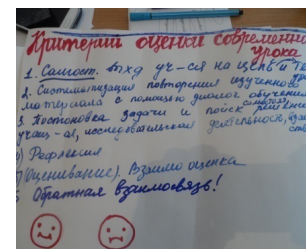 Критерии оценки современного
урока
1. Самост. выход уч-ся на цель и те
2. Систематизация повторения изученного
материала с помощью диалог. обучения
3 Постановка задачи и поиск решения
учащ-ся, исследовательская деятельност,
4) Рефлексия
(Оценивание). Взаимо оценка
Обратная взаимосвязь!